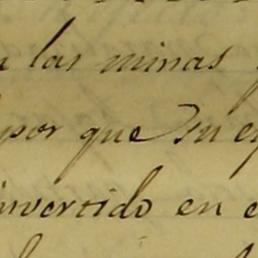 las minas
por que su
invertido en